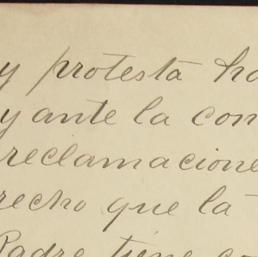 y protesta ha
y ante la com
reclamacione
recho que la
Padre tiene co